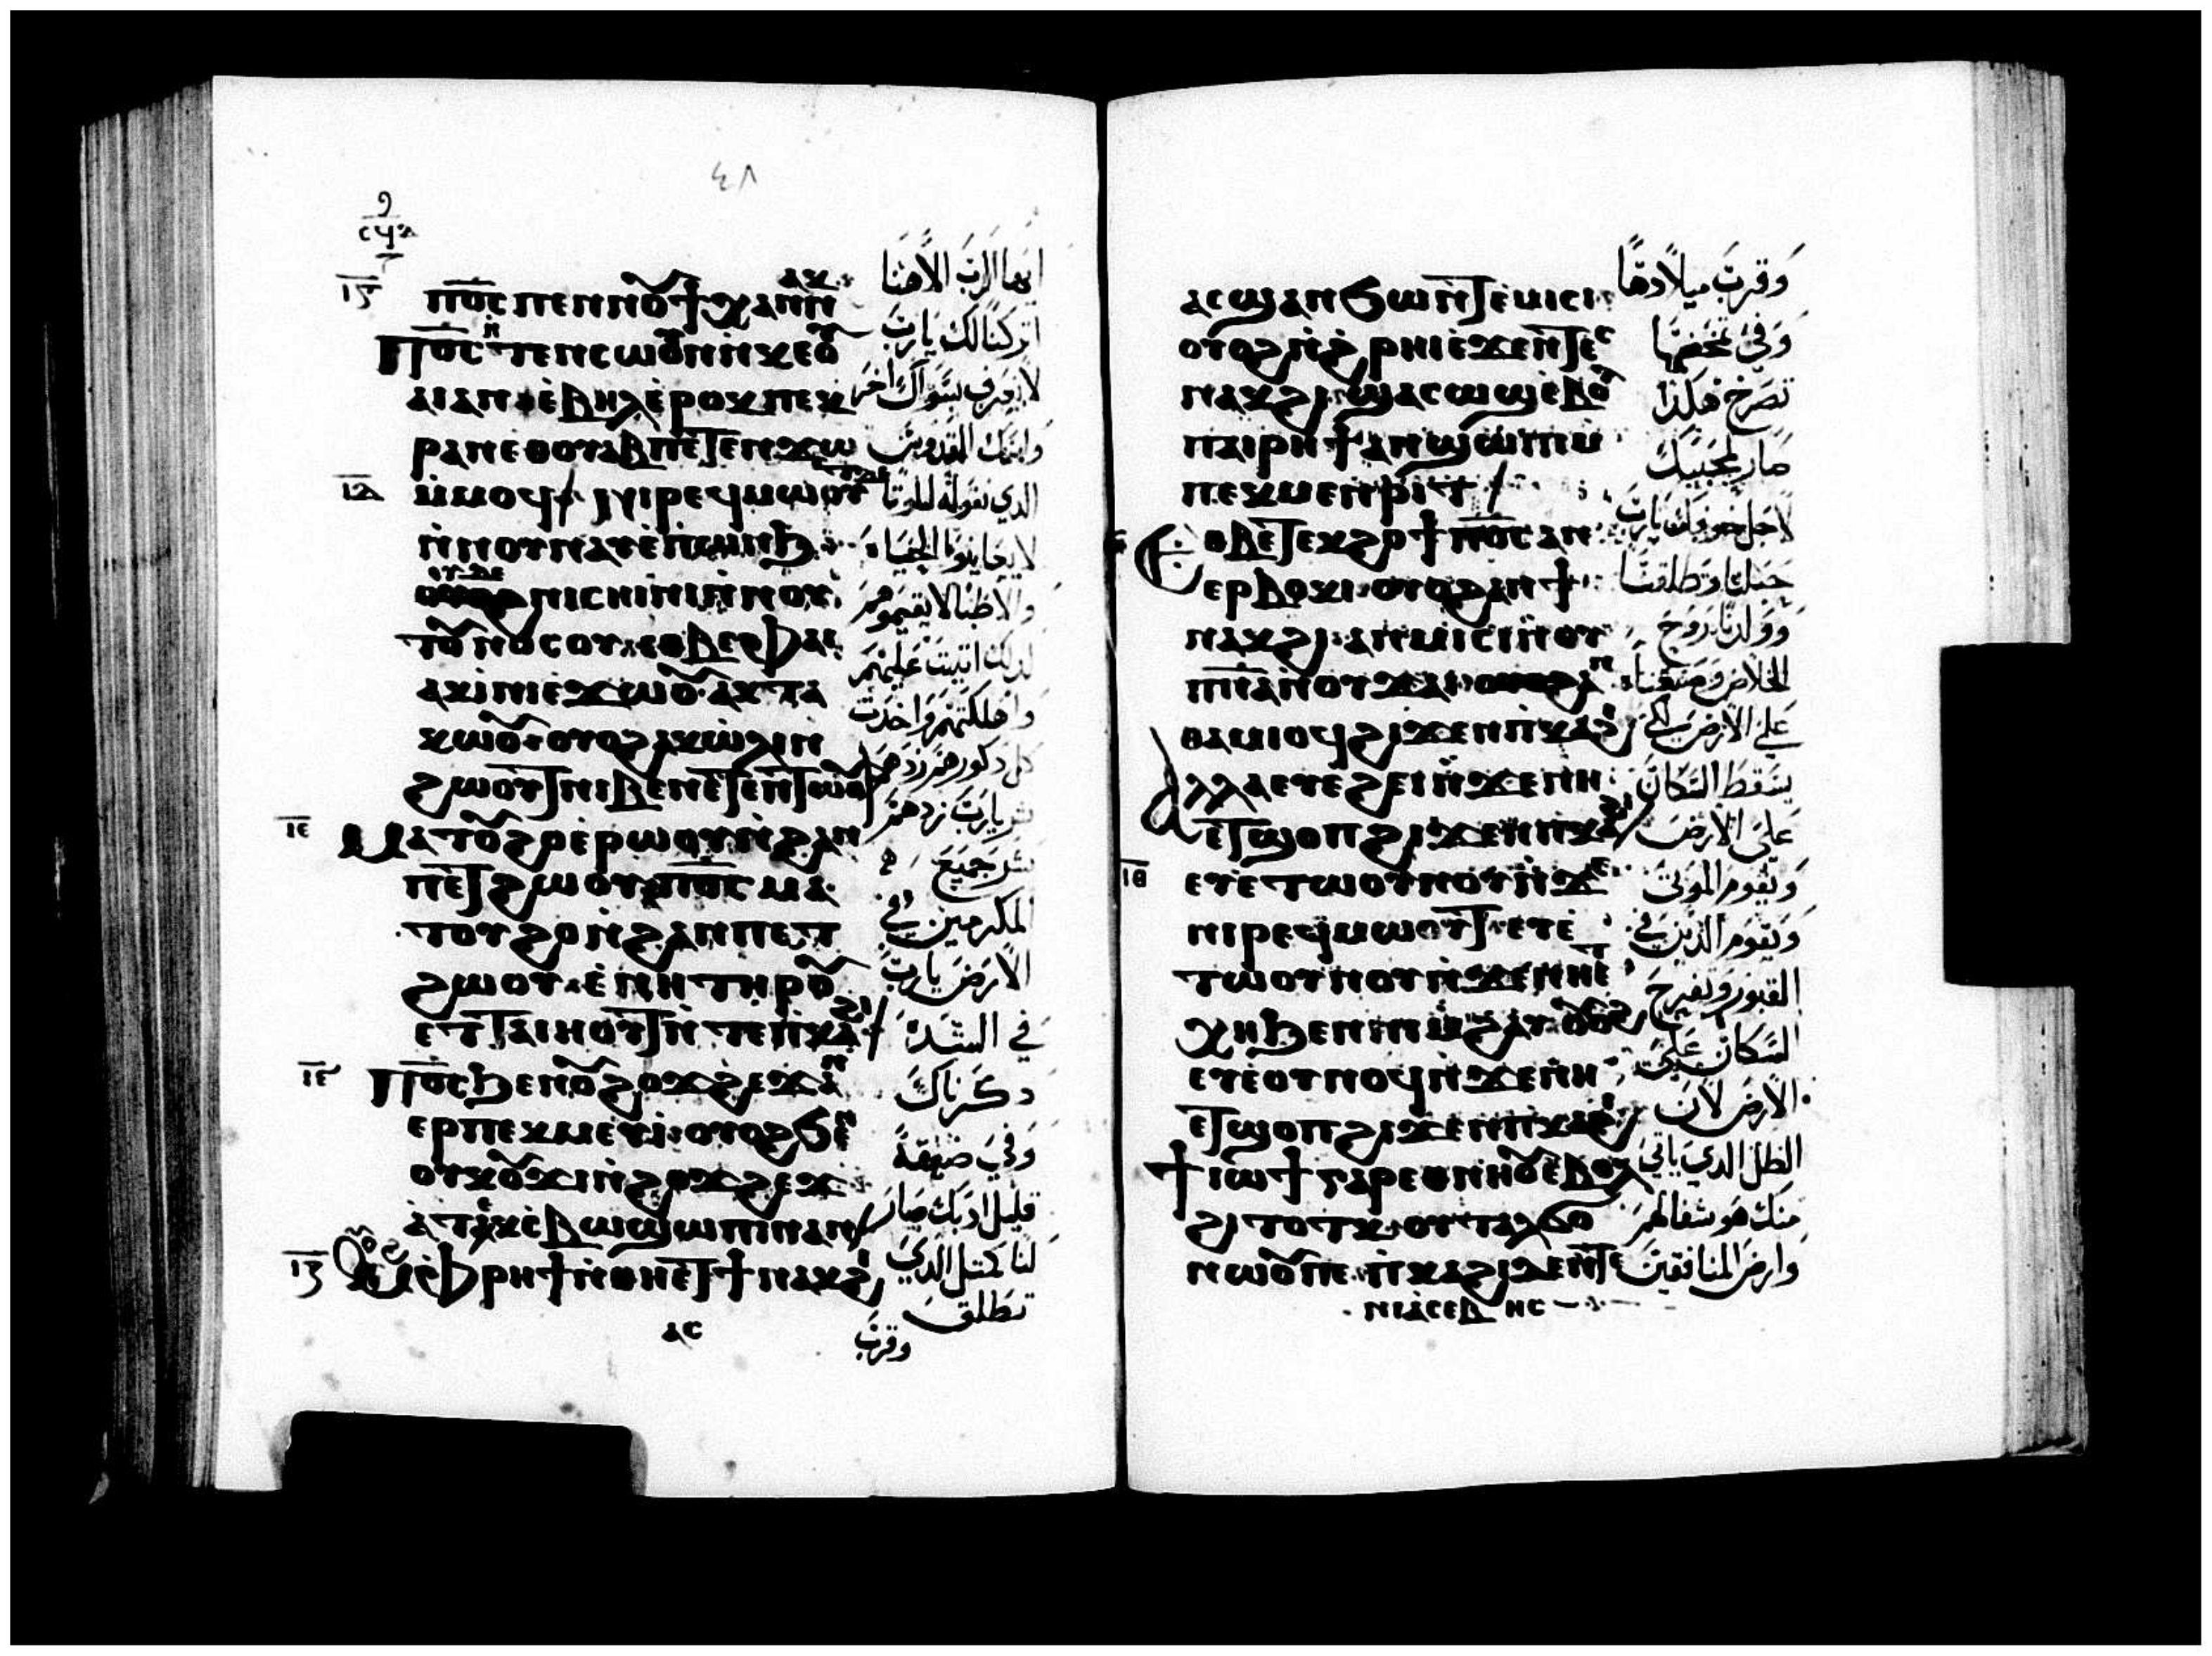 ٤٨
ⲓⲅ
ⲡⲟ̅ⲥ̅ ⲡⲉⲛⲛⲟⲩϯ ⲭⲁⲛ ⲛⲁⲕ
ⲡⲟ̅ⲥ̅ ⲧⲉⲛⲥⲱⲟⲩⲛ ⲛ̀ⲕⲉⲟⲩ
ⲁⲓ ⲁⲛ ⲉ̀ⲃⲏⲗ ⲉ̀ⲣⲟⲕ ⲡⲉⲕ
ⲣⲁⲛ ⲉⲑⲟⲩⲁⲃ ⲡⲉⲧⲉⲛϫⲱ
ⲓⲇ
ⲙ̀ⲙⲟϥ ⲛⲓⲣⲉϥⲙⲱⲟⲩⲧ ⲇⲉ
ⲛ̀ⲛⲟⲩⲛⲁⲩ ⲉ̀ⲡⲱⲛϧ
ⲟⲩⲇⲉ
ⲛⲓⲥⲏⲓⲛⲓ ⲛ̀ⲛⲟⲩ
ⲧⲟⲩⲛⲟⲥⲟⲩ ⲉⲑⲃⲉⲫⲁⲓ
ⲁⲕⲓ̀ⲛⲓ ⲉ̀ϫⲱⲟⲩ ⲁⲕⲧⲁ
ⲕⲱⲟⲩ ⲟⲩⲟϩ ⲁⲕⲱ̀ⲗⲓ ⲛ
ϩⲱⲟⲩⲧ ⲛⲓⲃⲉⲛ ⲉ̀ⲧⲉⲛⲧⲱⲟⲩ
ⲓⲉ
ⲙⲁⲧⲟⲩϩⲟ ⲉ̀ⲣⲱⲟⲩ ⲛ̀ϩⲁⲛ
ⲡⲉⲧϩⲱⲟⲩ ⲡⲟ̅ⲥ̅ ⲙⲁ
ⲧⲟⲩϩⲟ ⲛ̀ϩⲁⲛⲡⲉⲧ
ϩⲱⲟⲩ ⲉ̀ⲛⲏ ⲧⲏⲣⲟⲩ
ⲉⲧⲧⲁⲓⲏⲟⲩⲧ ⲛ̀ⲧⲉⲡⲕⲁϩⲓ
ⲓⲋ
ⲡⲟ̅ⲥ̅ ϧⲉⲛⲟⲩϩⲟϫϩⲉϫ ⲁⲛ
ⲉⲣⲡⲉⲕⲙⲉⲩⲓ ⲟⲩⲟϩ ϧⲉⲛ
ⲟⲩⲕⲟⲩϫⲓ ⲛ̀ϩⲟϫϩⲉϫ
ⲁⲧⲉⲕⲥ̀ⲃⲱ ϣⲱⲡⲓ ⲛⲁⲛ
ⲓⲍ
ⲙ̀ⲫⲣⲏϯ ⲛ̀ⲑⲏⲉⲧϯⲛⲁⲕϩⲓ
ⲁⲥ
ايها الرب الاهنا
اتركنا لك يارب
لا نعرف سواك اخر
واسمك القدوس
الدي نقوله
لا يعاينوا الحياه
والاطبا لا يقيموهم
لدلك اتيت عليهم
واهلكتهم واخدت
كل دكور هم زدهم
شر يارب زدهم
شر جميع
المكرمين في
الارض يارب
في الشدة
دكرناك
وفي ضيقة
قليل ادبك صار
لنا كمثل الدي
تطلق
وقرب
ⲁⲥϣⲁⲛϧⲱⲛⲧ ⲉ̀ⲙⲓⲥⲓ
ⲟⲩⲟϩ ⲛ̀ϩ̀ⲣⲏⲓ ⲉ̀ϫⲉⲛⲧⲉⲥ
ⲛⲁⲕϩⲓ ϣⲁⲥⲱϣ ⲉ̀ⲃⲟⲗ
ⲡⲁⲓⲣⲏϯ ⲁⲛϣⲱⲡⲓ ⲙ
ⲡⲉⲕⲙⲉⲛⲣⲓⲧ
ⲉⲑⲃⲉⲧⲉⲕϩⲟϯ ⲡⲟ̅ⲥ̅ ⲁⲛ
ⲉⲣⲃⲟⲕⲓ ⲟⲩⲟϩ ⲁⲛϯ
ⲛⲁⲕϩⲓ ⲁⲛⲙⲓⲥⲓ ⲛ̀ⲟⲩ
ⲡ̅ⲛ̅ⲁ̅ ⲛ̀ⲟⲩϫⲁⲓ ⲁⲛ
ⲑⲁⲙⲓⲟϥ ϩⲓϫⲉⲛ ⲡⲕⲁϩⲓ
ⲁⲗⲗⲁ ⲉⲩⲉ̀ϩⲉⲓ ⲛ̀ϫⲉⲛⲏ
ⲉⲧϣⲟⲡ ϩⲓϫⲉⲛ ⲡⲕⲁϩⲓ
ⲓⲑ
ⲉⲩⲉ̀ⲧⲱⲟⲩⲛⲟⲩ ⲛ̀ϫⲉ
ⲛⲓⲣⲉϥⲙⲱⲟⲩⲧ ⲉⲩⲉ̀
ⲧⲱⲟⲩⲛⲟⲩ ⲛ̀ϫⲉⲛⲏⲉⲧ
ⲭⲏ ϧⲉⲛ ⲛⲓⲙ̀ϩⲁⲩ ⲟⲩⲟϩ
ⲉⲩⲉ̀ⲟⲩⲛⲟϥ ⲛ̀ϫⲉⲛⲏ
ⲉⲧϣⲟⲡ ϩⲓϫⲉⲛ ⲡⲕⲁϩⲓ
ϯⲓⲱϯ ⲅⲁⲣ ⲉⲑⲛⲏⲟⲩ ⲉ̀ⲃⲟⲗ
ϩⲓⲧⲟⲧⲕ ⲟⲩⲧⲁⲗϭⲟ
ⲛⲱⲟⲩ ⲡⲉ ⲡ̀ⲕⲁϩⲓ ⲇⲉ ⲛ̀ⲧⲉ
ⲛⲓⲁ̀ⲥⲉⲃⲏⲥ
وقرب ميلادها
وفي مخضها
تصرخ هكذا
صار لحبيبك
لاجل خوفك يارب
حبلنا وتطلقنا
وولدنا روح
الخلاص وصنعناه
على الارض لكي
يسقط السكان
على الارض
ويقوم الموتى
ويقوم الذين في
القبور وتفرح
السكان على
الارض لان
الطل الدي ياتي
منك هو شفا لهم
وارض المنافقين